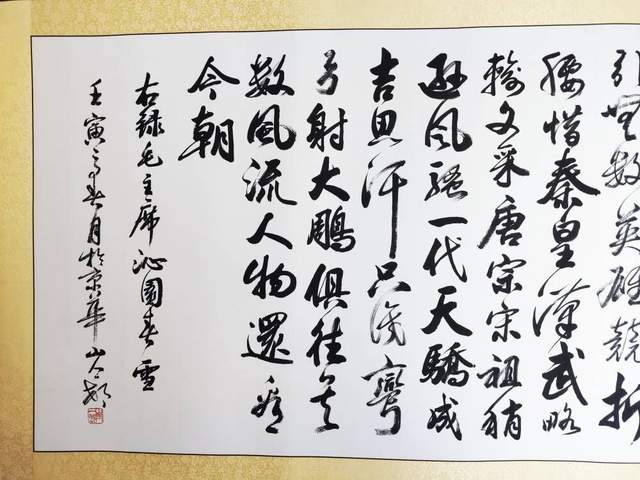 引無數英雄競折
腰惜秦皇漢武略
輸文采唐宗宋祖稍
遜風騷一代天驕成
吉思汗只識彎
弓射大鵰俱往矣
數風流人物還看
今朝
右録毛主席沁園春雪
壬寅之春月於京華